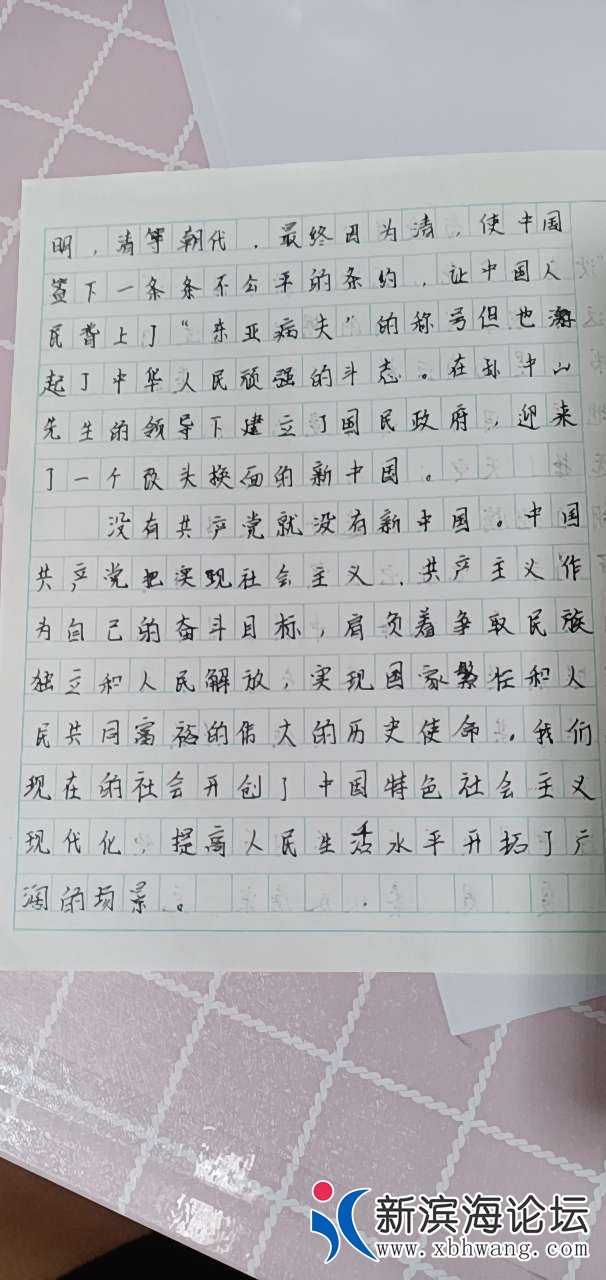 明，清等朝代，最终因为清，使中国
签下一条条不公平的条约，让中国人
民背上了“东亚病夫”的称号但也激
起了中华人民顽强的斗志。在孙中山
先生的领导下建立了国民政府，迎来
了一个改头换面的新中国。
没有共产党就没有新中国。中国
共产党把实现社会主义、共产主义作
为自己的奋斗目标，肩负着争取民族
独立和人民解放，实现国家繁任和人
民共同富裕的伟大的历史使命，我们
现在的社会开创了中国特色社会主义
现代化，提高人民生活水平开拓了广
阔的场景。
新滨海论坛
www.xbhwang.com